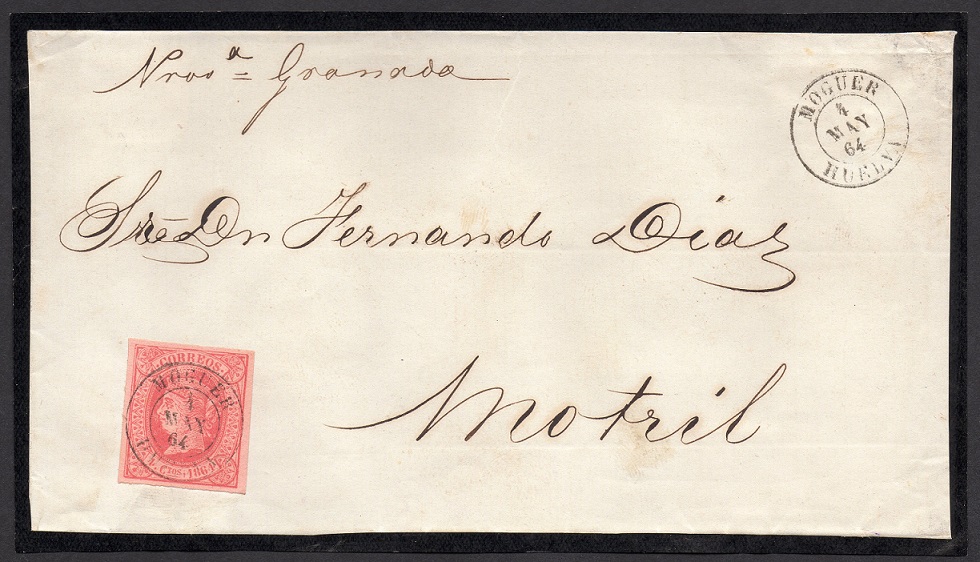 Provᵃ = Granada
MOGUER
4
MAY
64
HUELVA
Sr. Dn Fernando Díaz
Motril
CORREOS
MOGUER
4
MAY
64
Ctos 1864